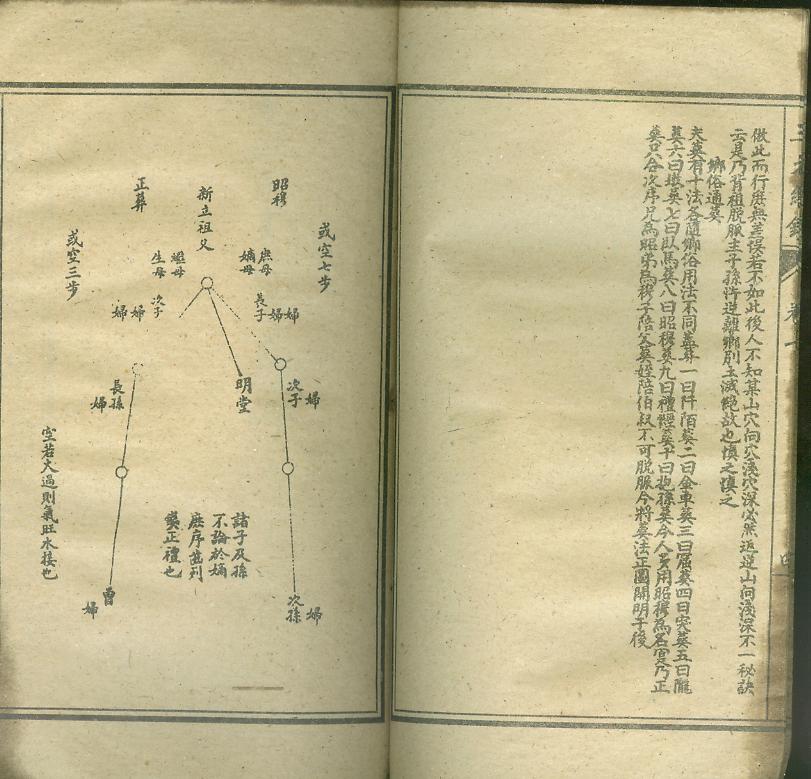 倣此而行庶無差悞若不如此後人不知某山穴向穴淺穴深必然返逆山向淺深不一秘訣
云是乃背祖脱脈主子孫忤逆離鄉別土滅絶故也慎之慎之
鄉俗通葬
夫葬有十法各隨鄉俗用法不同盖葬一曰阡陌葬二曰金車葬三曰窟葬四曰突葬五曰隴
葬六曰墩葬七曰臥馬葬八曰昭穆葬九曰禮經葬十曰抱孫葬今人多用昭穆為名寔乃正
葬只合次序兄為昭弟為穆子陪父葬姪陪伯叔不可脱脈今將葬法正圖開明于後
或空七步
昭穆
庶母
嫡母
新立祖父
繼母
生母
正葬
或空三步
婦
婦
長子
次子
婦
婦
婦
次子
明堂
長孫
婦
諸子及孫
不論於嫡
庶序昔列
葬正禮也
空若大過則氣旺水接也
婦
次孫
曾
婦